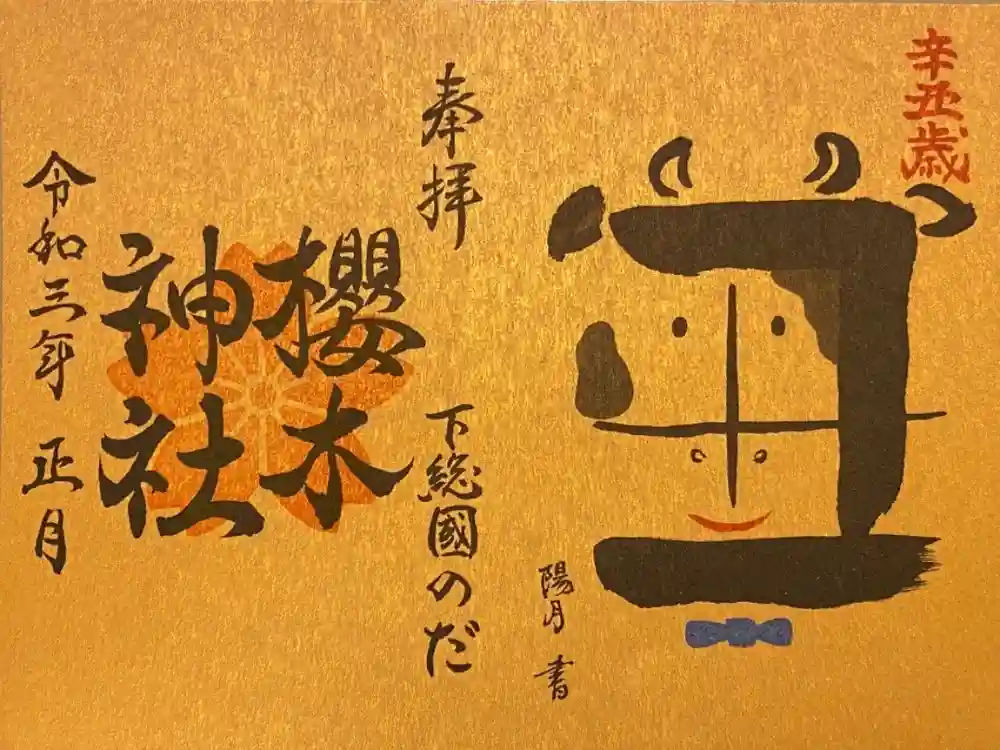 辛丑歳
丑
陽月 書
奉拝
下総國のだ
櫻木
神社
令和三年 正月